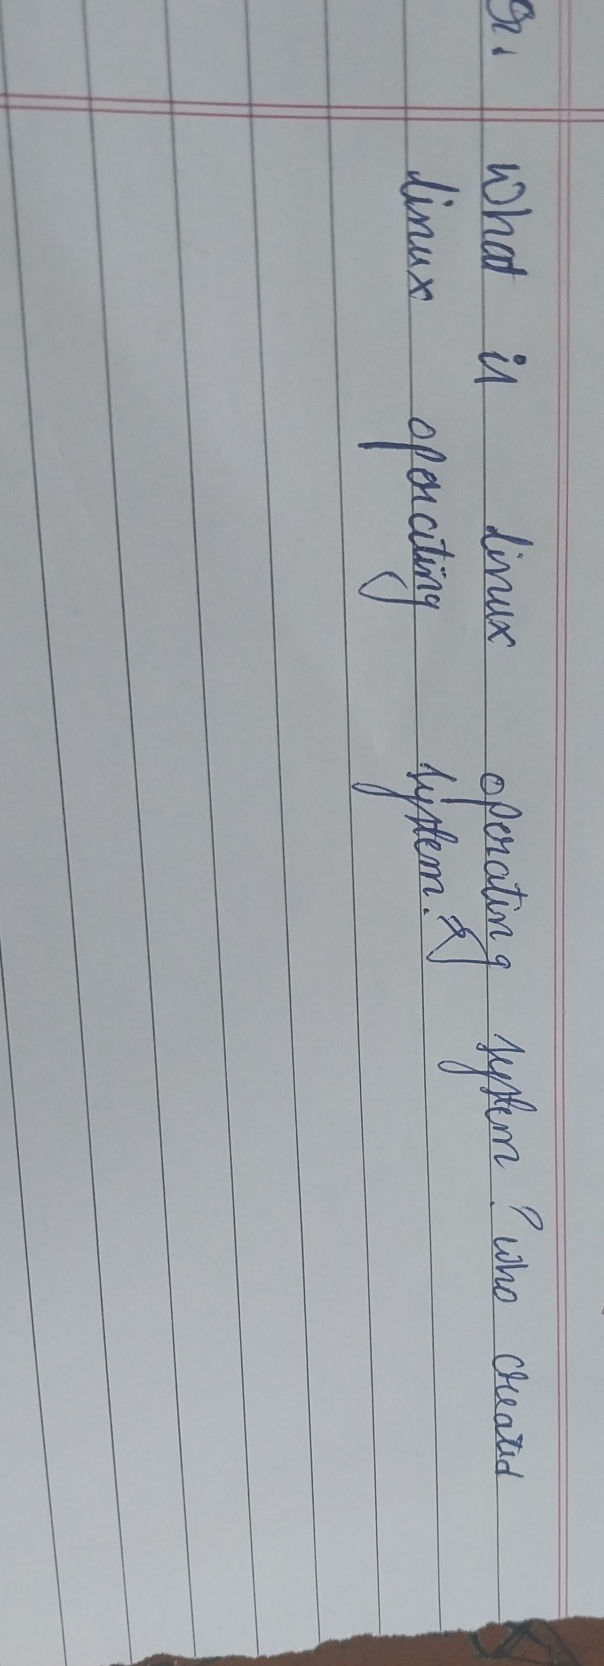 Q1. What is Linux operating system? who created
Linux operating system.